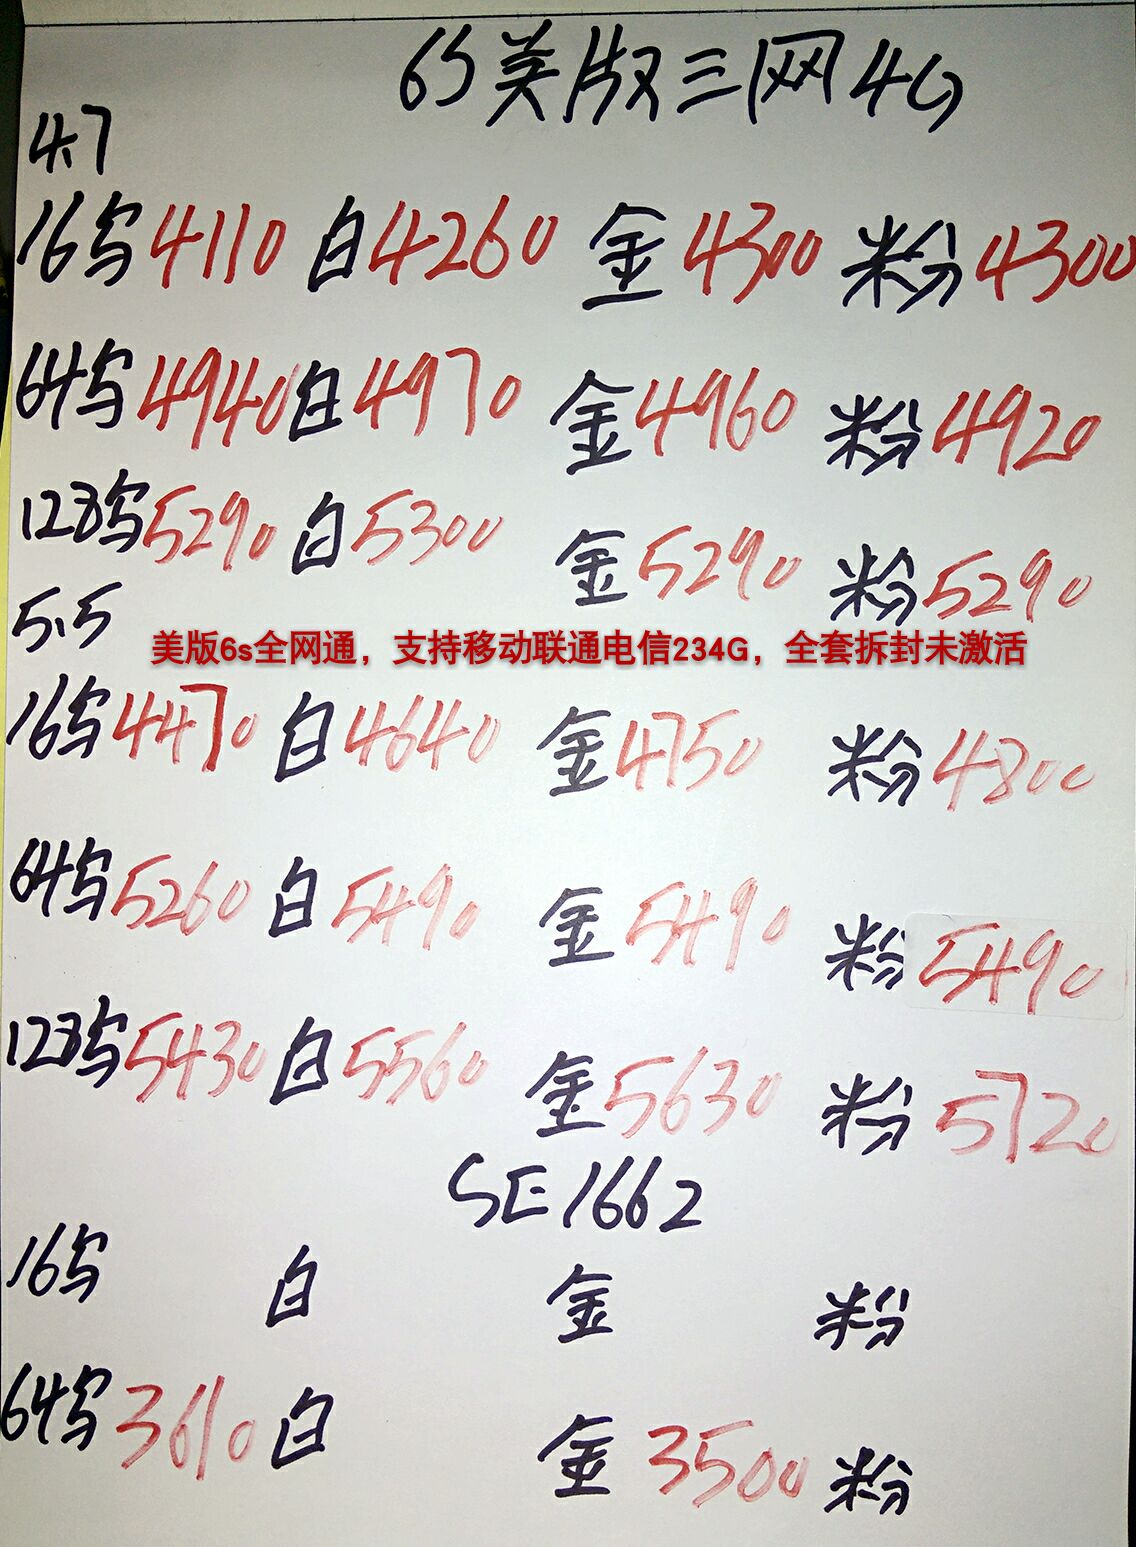 6S美版三网4G
4.7
16写4110 白4260 金4300 粉4300
64写4940 白4970 金4960 粉4920
128写5290 白5300 金5290 粉5290
5.5
美版6s全网通，支持移动联通电信234G，全套拆封未激活
16写4470 白4640 金4750 粉4800
64写5260 白5490 金5490 粉5490
128写5430 白5560 金5630 粉5720
SE1662
16写 白 金 粉
64写3610 白 金3500 粉